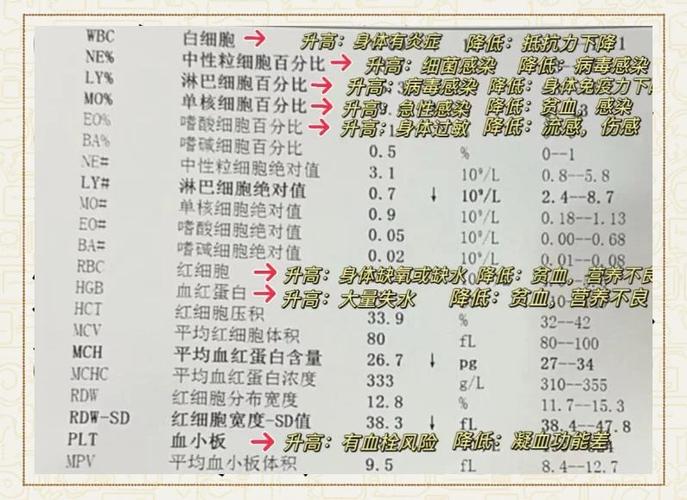 WBC 白细胞 → 升高：身体有炎症 降低：抵抗力下降
NE% 中性粒细胞百分比 → 升高：细菌感染 降低：病毒感染
LY% 淋巴细胞百分比 → 升高：病毒感染 降低：身体免疫力下
MO% 单核细胞百分比 → 升高：急性感染 降低：贫血，感染
EO% 嗜酸细胞百分比 → 升高：身体过敏 降低：流感，伤感
BA% 嗜碱细胞百分比 0.5 % 0--1
NE# 中性粒细胞绝对值 3.1 10⁹/L 0.8--5.8
LY# 淋巴细胞绝对值 0.7 ↓ 10⁹/L 2.4--8.7
MO# 单核细胞绝对值 0.9 10⁹/L 0.18--1.13
EO# 嗜酸细胞绝对值 0.05 10⁹/L 0.00--0.68
BA# 嗜碱细胞绝对值 0.02 10⁹/L 0.01--0.08
RBC 红细胞 → 升高：身体缺氧或缺水 降低：贫血，营养不良
HGB 血红蛋白 → 升高：大量失水 降低：贫血，营养不良
HCT 红细胞压积 33.9 % 32--42
MCV 平均红细胞体积 80 fL 80--100
MCH 平均血红蛋白含量 26.7 ↓ pg 27--34
MCHC 平均血红蛋白浓度 333 g/L 310--355
RDW 红细胞分布宽度 12.8 % 11.7--15.3
RDW-SD 红细胞宽度-SD值 38.3 ↓ fL 38.4--47.8
PLT 血小板 → 升高：有血栓风险 降低：凝血功能差
MPV 平均血小板体积 9.5 fL 8.4--12.7